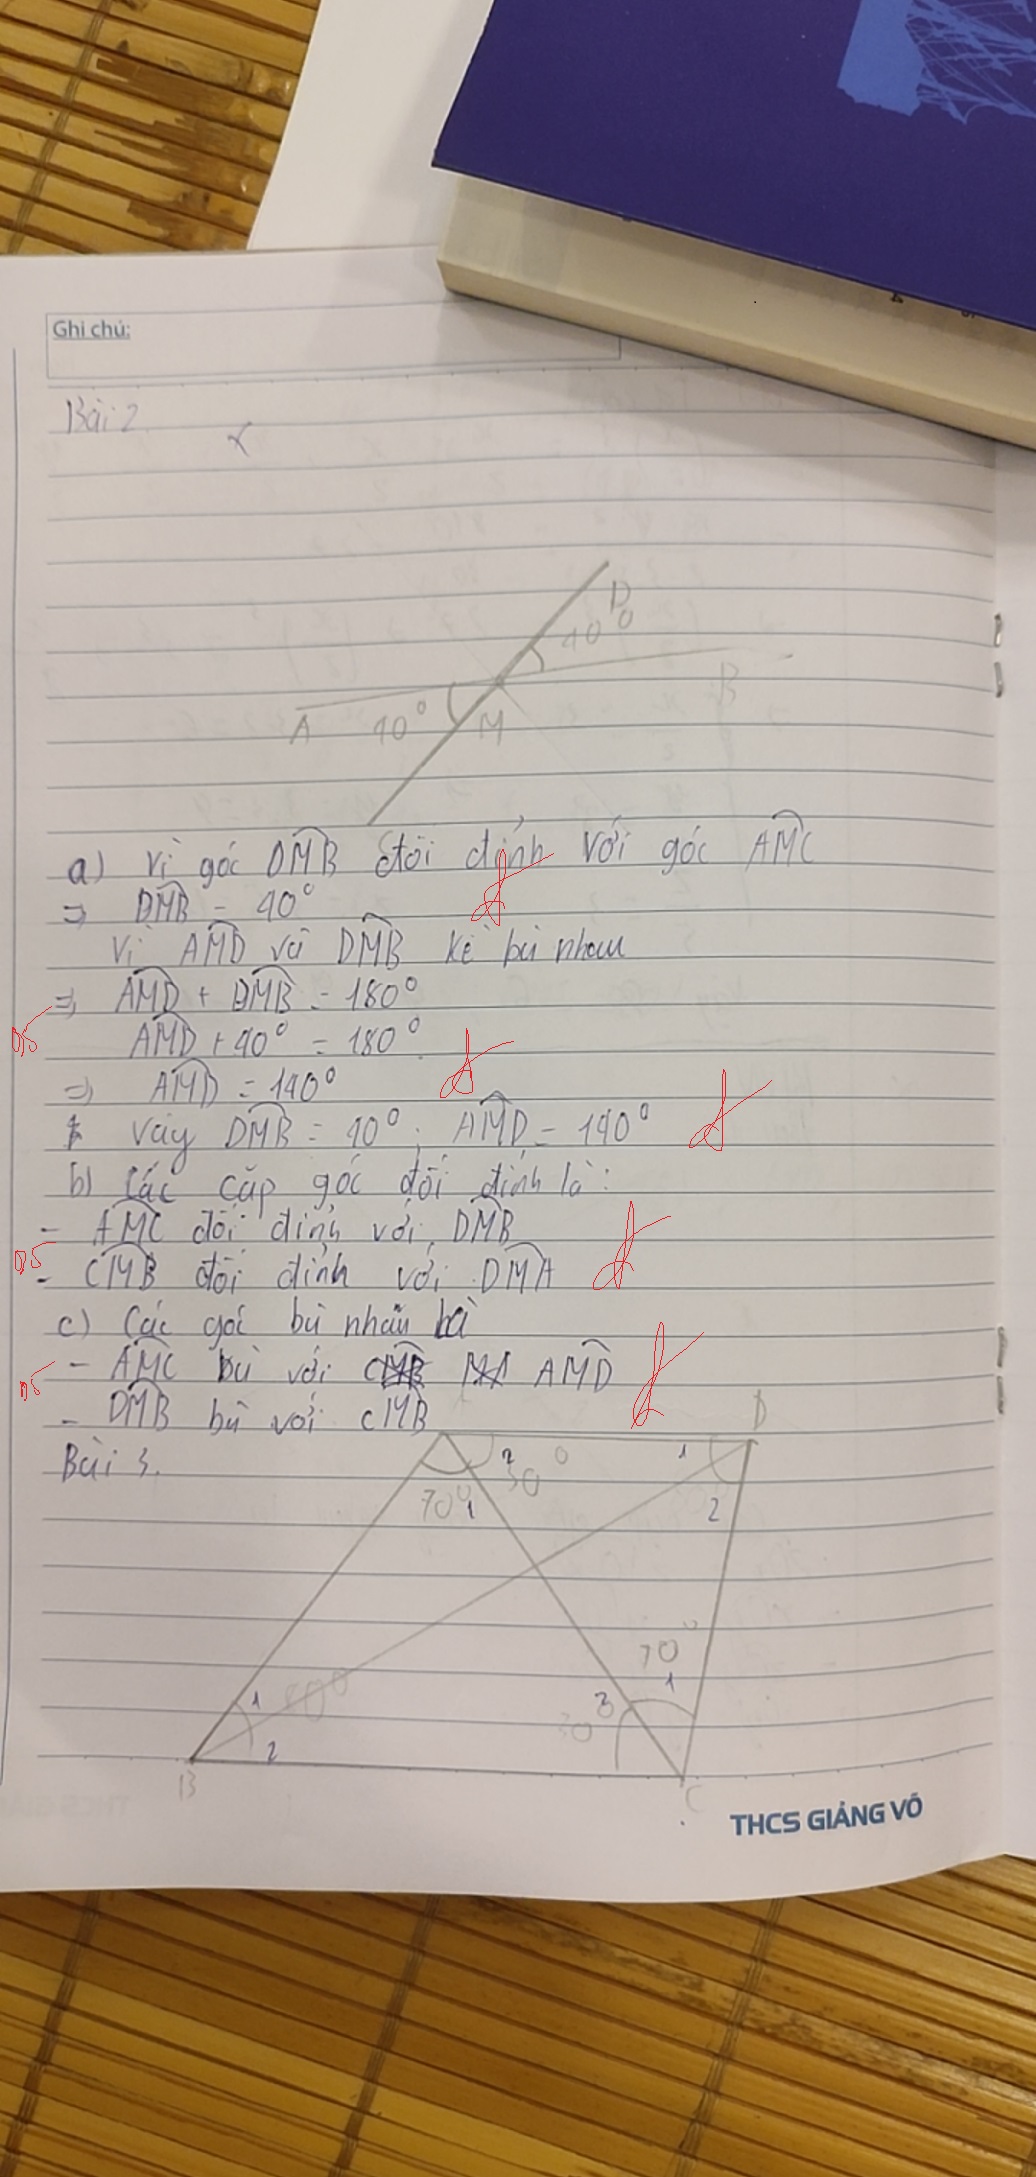 Ghi chú:
Bài 2.
D
40°
B
A
40°
M
a) Vì góc DMB đối đỉnh với góc AMC
=> DMB = 40°
Vì AMD và DMB kề bù nhau
=> AMD + DMB = 180°
0,5
AMD + 40° = 180°
=> AMD = 140°
Vậy DMB = 40°; AMD = 140°
b) Các cặp góc đối đỉnh là:
- AMC đối đỉnh với DMB
0,5
- CMB đối đỉnh với DMA
c) Các góc bù nhau là
0,5
- AMC bù với AMD
- DMB bù với CMB
D
Bài 3.
2
30°
1
70°
1
2
70°
1
1
60°
2
B
C
THCS GIẢNG VÕ